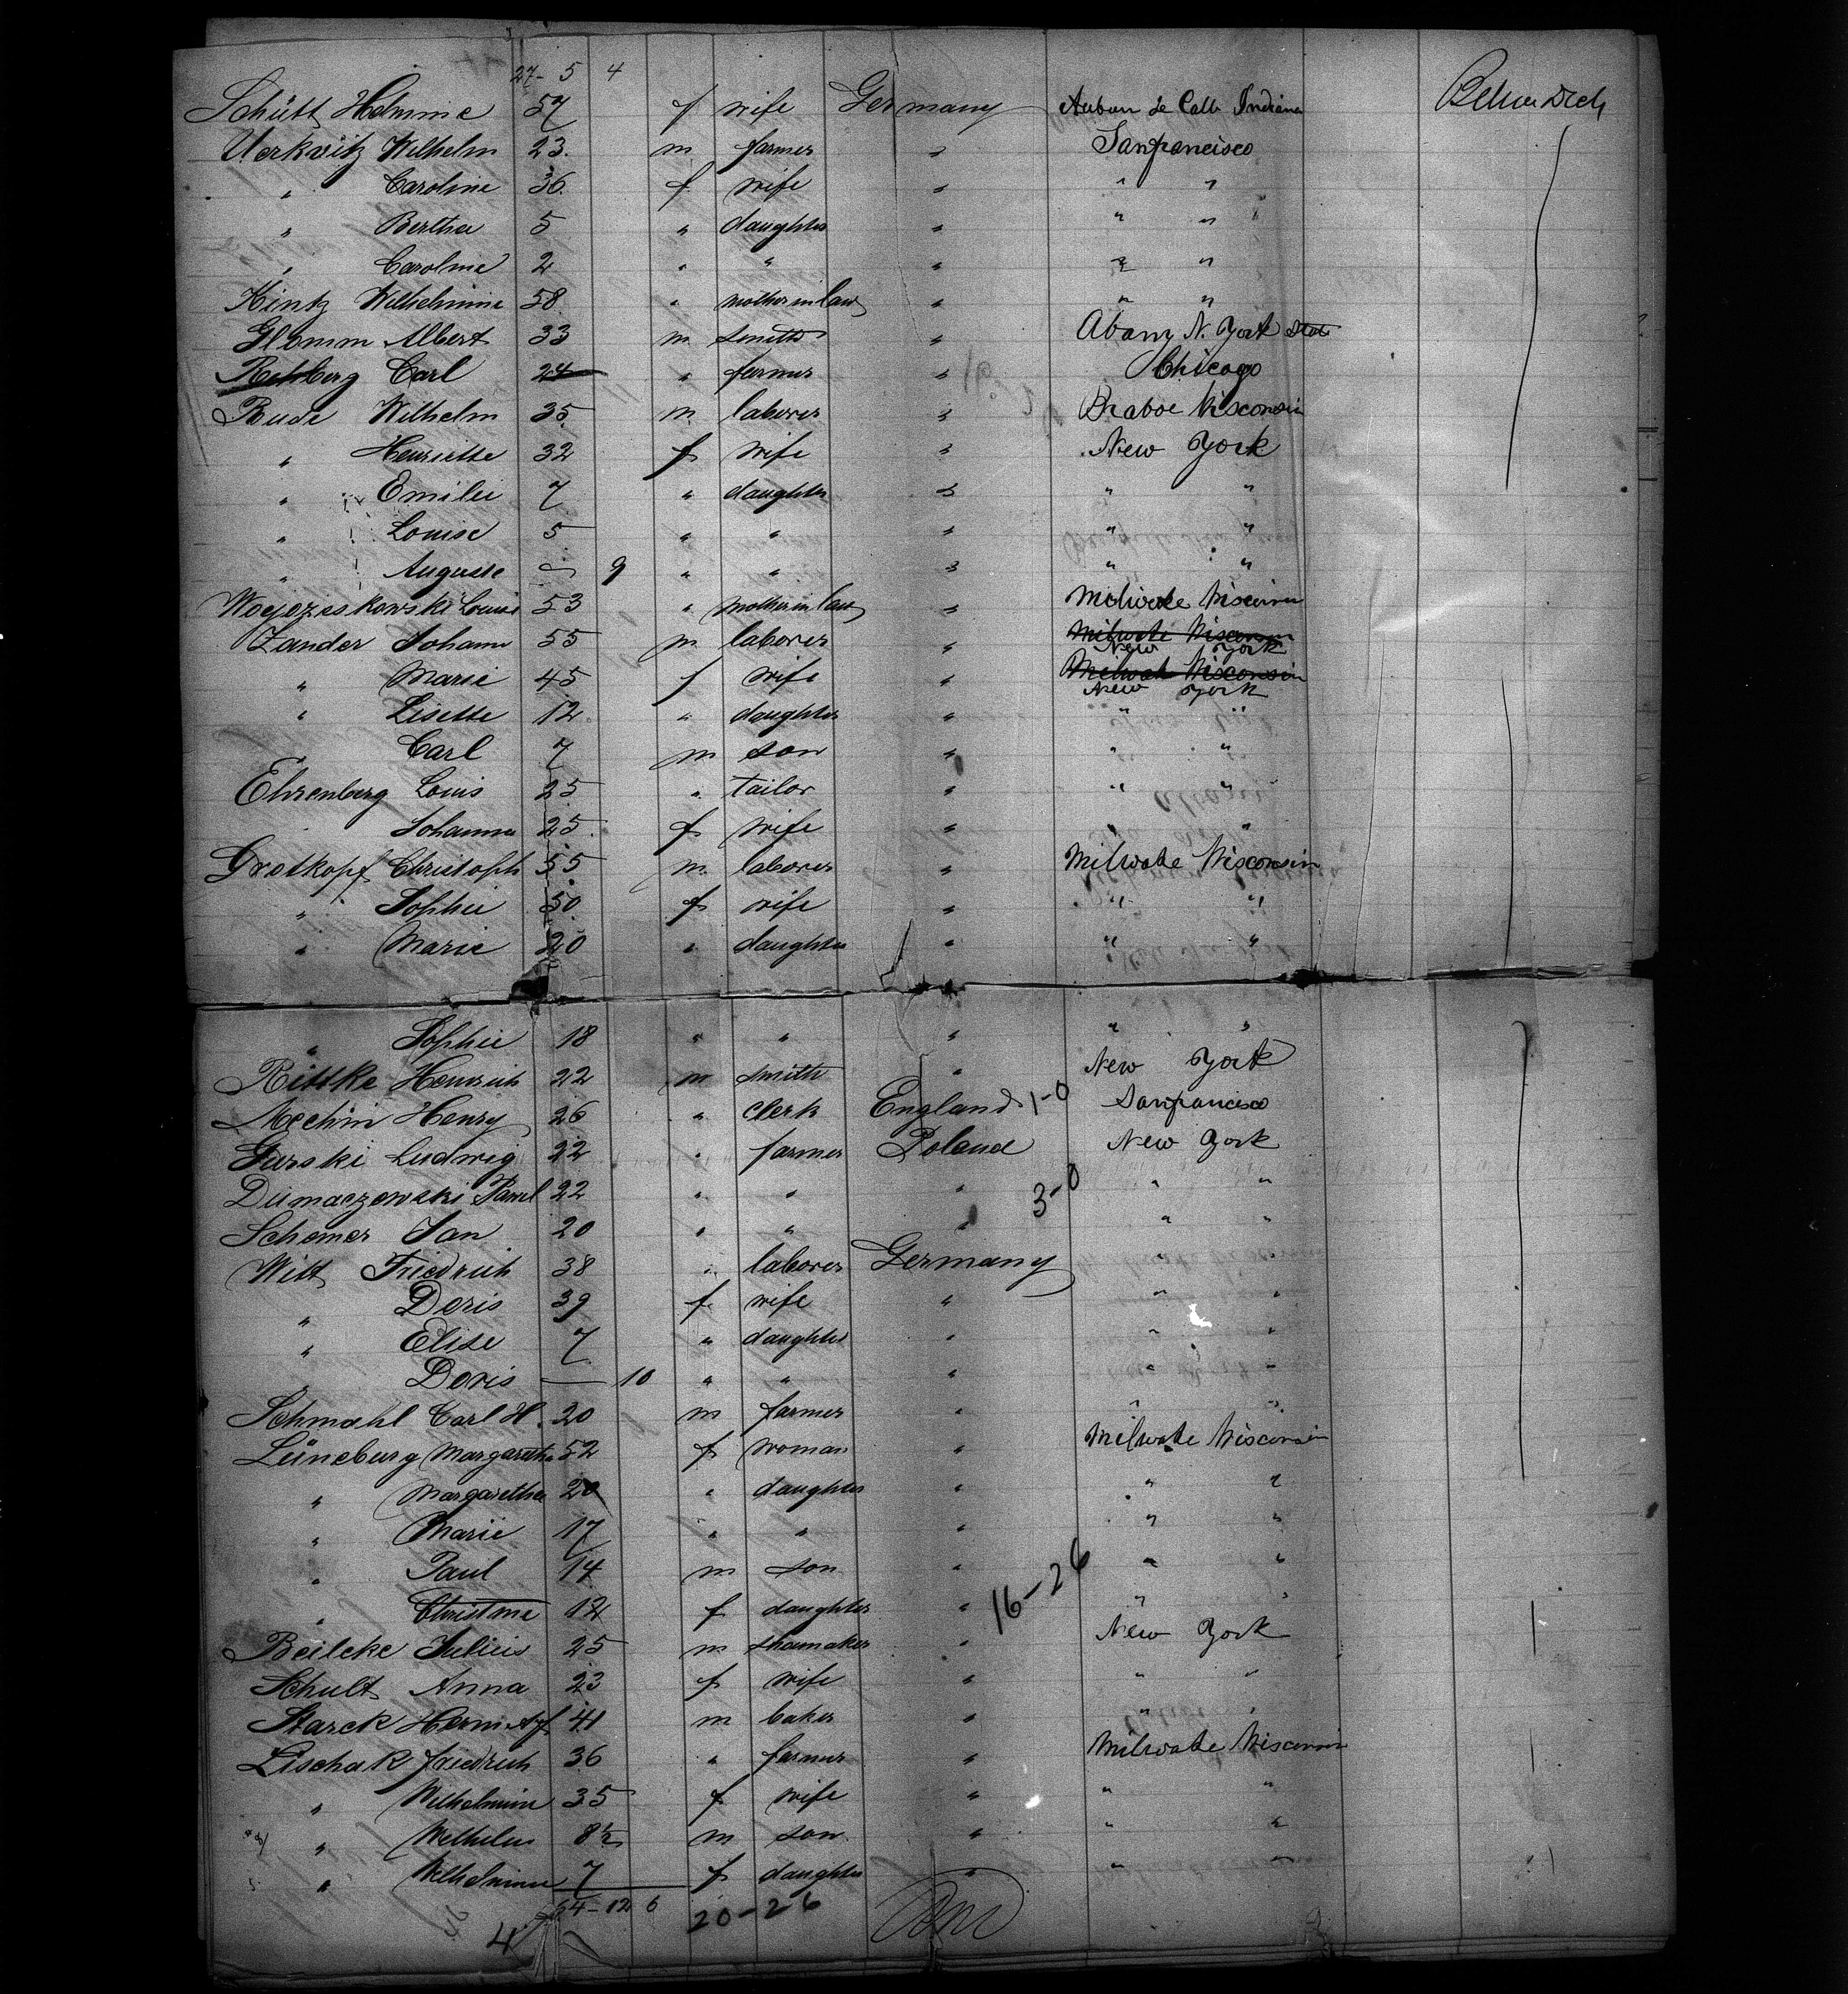 27- 5 4
Schütt Helmine 57 f wife Germany Auburn de Calb Indiana Below Deck
Uerkvitz Wilhelm 23 m farmer " Sanfrancisco
" Caroline 36 f wife " " "
" Bertha 5 " daughter " " "
" Caroline 2 " " " " "
Kintz Wilhelmine 58 " mother in law " " "
Glamm Albert 33 m smith " Abany N. York State
Rehberg Carl 24 " farmer " Chicago
Bude Wilhelm 35 m laborer " Braboe Wisconsin
" Henriette 32 f wife " New York
" Emilie 7 " daughter " " "
" Louise 5 " " " " "
" Auguste – 9 " " " " "
Woyczeskowski Louise 53 " mother in law " Milwake Wisconsin
Zander Johann 55 m laborer " Milwake Wisconsin
New York
" Marie 45 f wife " Milwake Wisconsin
New York
" Lisette 12 " daughter " " "
" Carl 7 m son " " "
Ehrenberg Louis 25 " tailor " " "
Johanna 25 f wife " " "
Grotkopf Christoph 55 m laborer " Milwake Wisconsin
" Sophie 50 f wife " " "
" Marie 20 " daughter " " "
" Sophie 18 " " " " "
Rittke Heinrich 22 m smith " New York
Mechin Henry 26 " clerk England 1-0 Sanfrancisco
Gurski Ludwig 22 " farmer Poland New York
Dumaczewski Pawel 22 " " " 3-0 " "
Schemer Jan 20 " " " " "
Witt Friedrich 38 " laborer Germany "
" Doris 39 f wife " "
" Elise 7 " daughter " " "
Doris — 10 " " " " "
Schmahl Carl H. 20 m farmer " " "
Lüneburg Margaretha 52 f woman " Milwake Wisconsin
" Margaretha 20 " daughter " " "
" Marie 17 " " " " "
" Paul 14 m son " " "
" Christine 12 f daughter " 16-26 " "
Beilcke Julius 25 m shumaker " New York
Schult Anna 23 f wife " " "
Starck Herm 41 m baker " " "
Lischak Friedrich 36 " farmer " Milwake Wisconsin
" Wilhelmine 35 f wife " " "
" Wilhelm 8½ m son " " "
" Wilhelmine 7 f daughter " " "
64-12 6 20-26
4